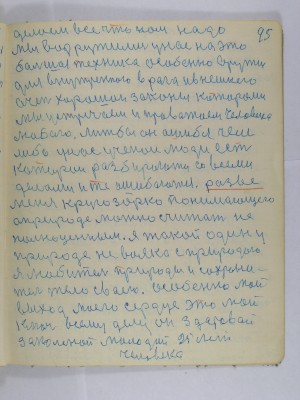 делаем все что нам надо
95
мы вооружились у нас на это
большая техника особенно внутри
для внутреннего врага и внешнего
есть хорошии законы которыми
мы встречаем и провожаем человека
любого. Либо он ошибся чем
либо у нас учёнои люди есть
которыи разбираются со всеми
делами и не ошибаются, разве
меня кругозорко понимающего
в природе можно считать не
полноценным. Я такой один у
природе не ваяка с природою
я любитель природы и сохрани-
тель тело своего. Особенно мой
выход моего сердца это мой
ключ всему делу он здоровай
законной молодой 25 лет
человека